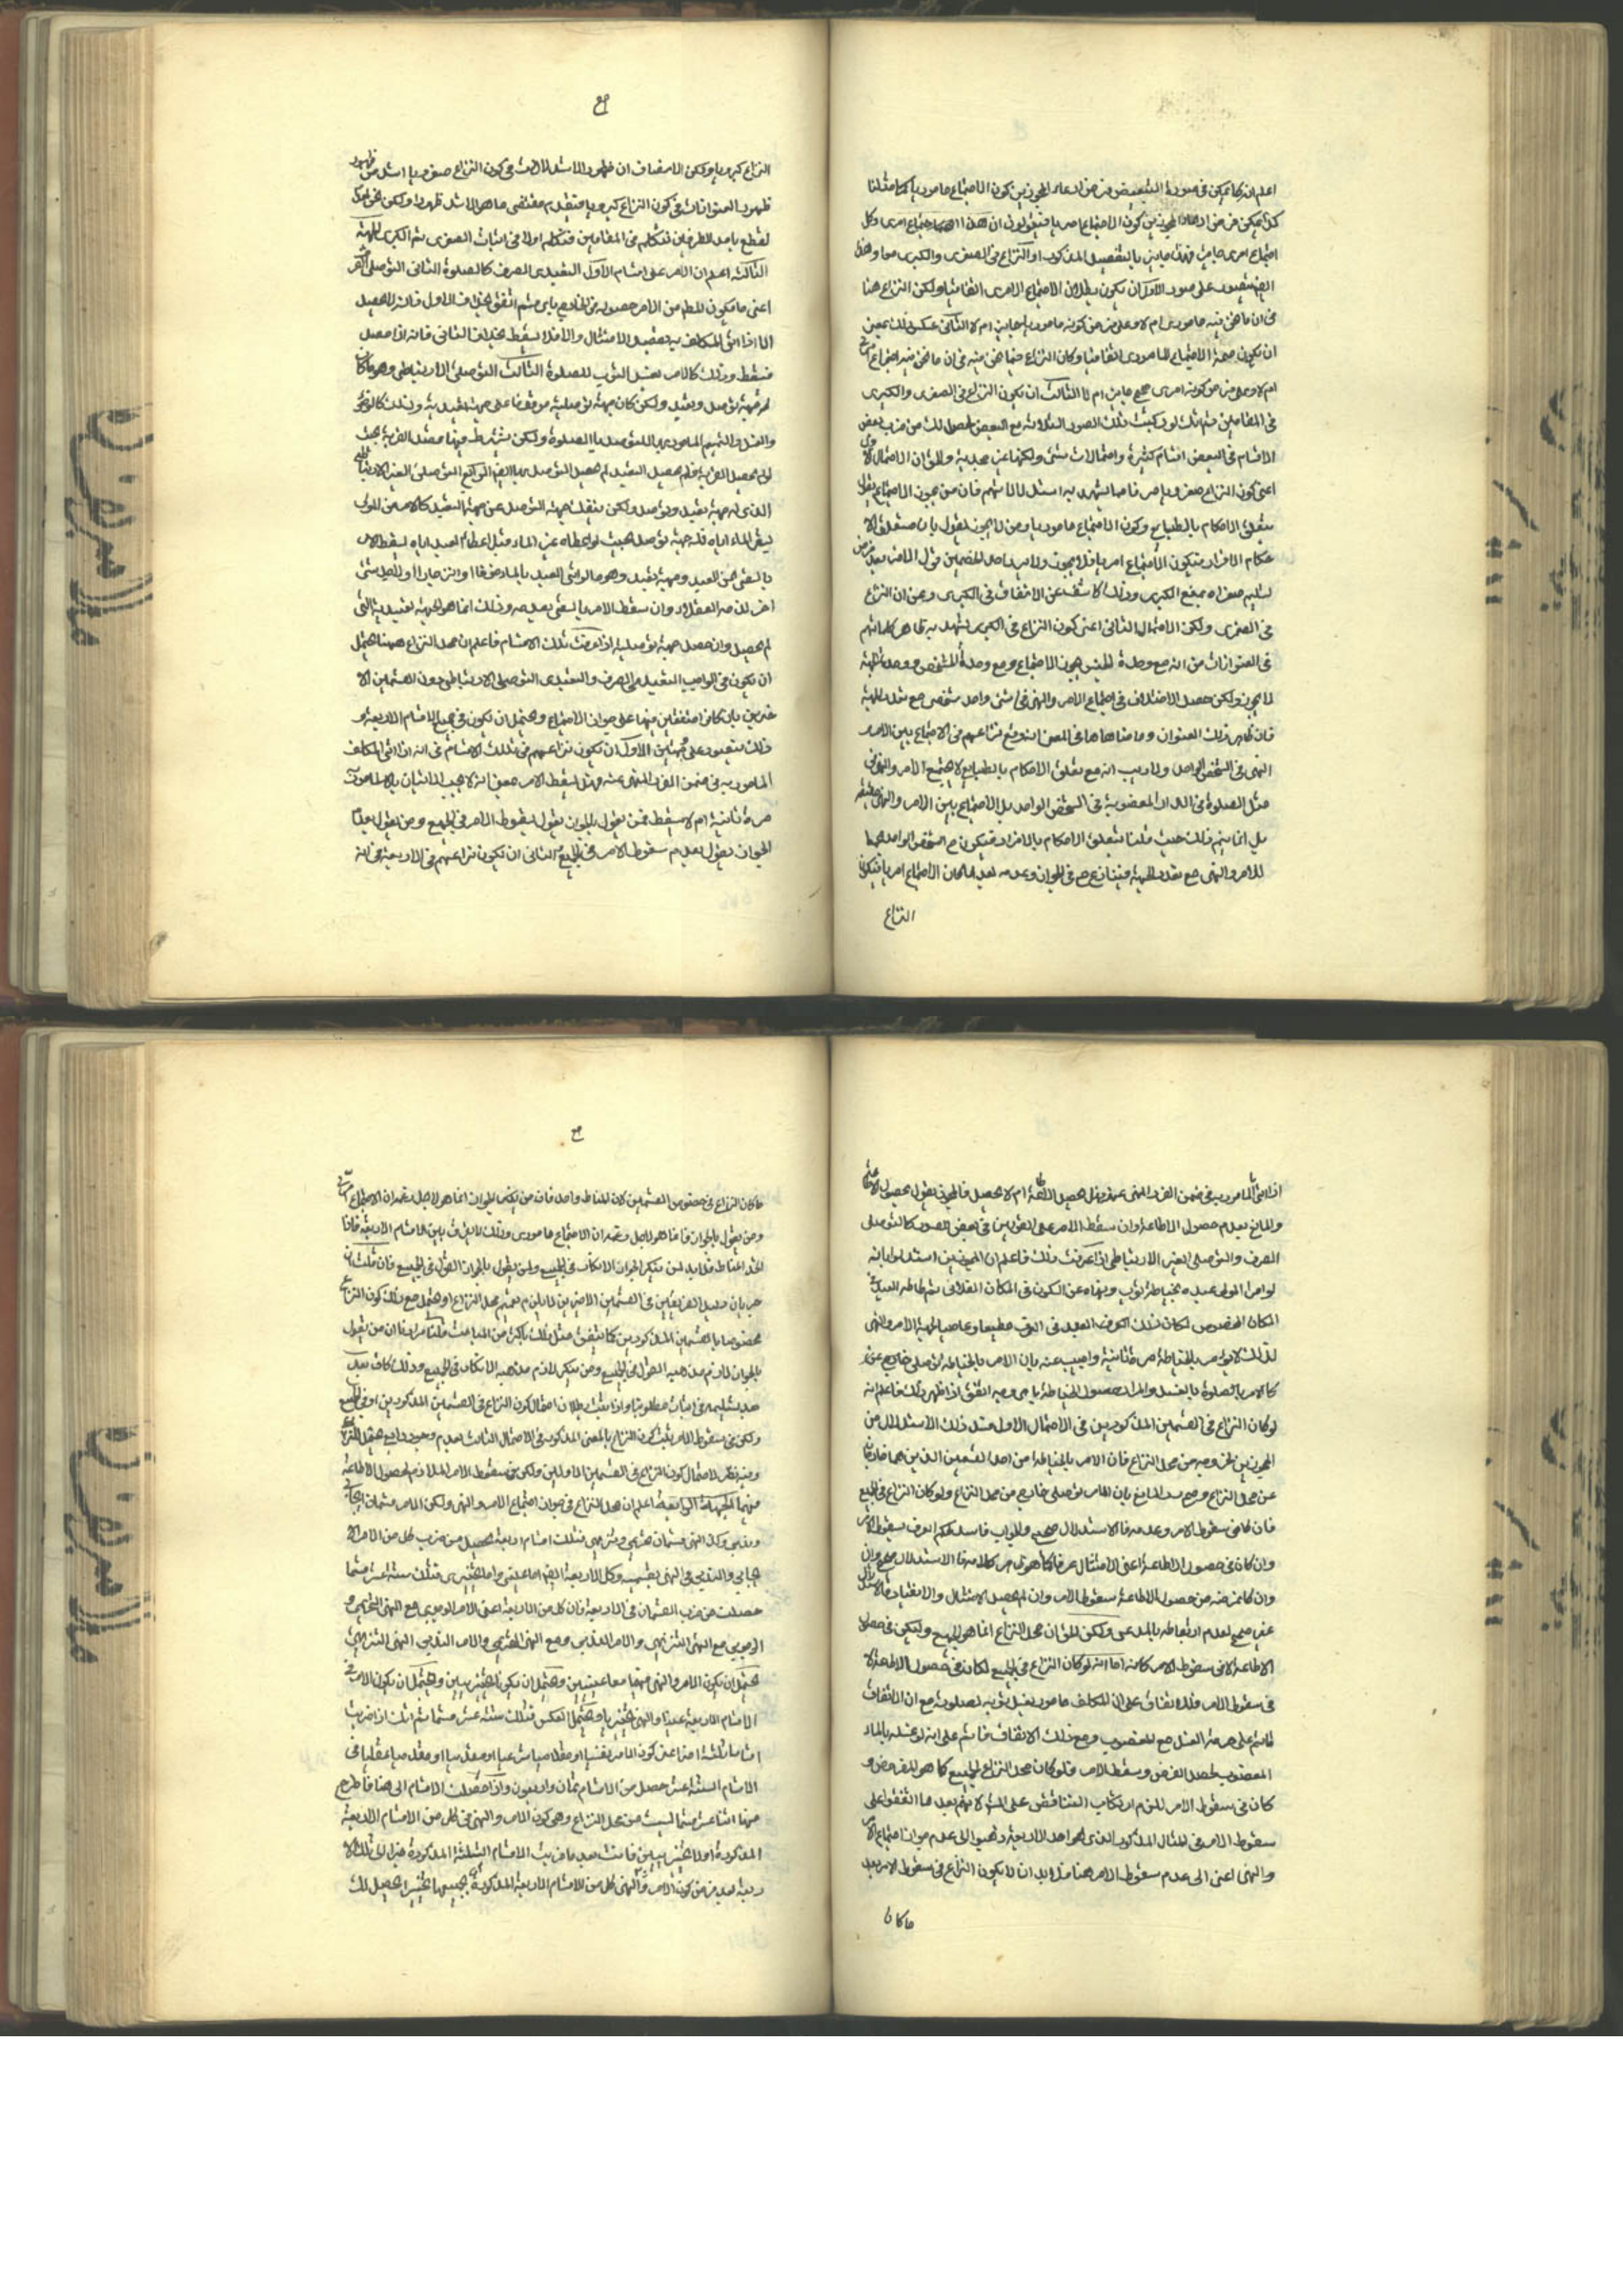 اعلم انه كما يمكن في صورة التبعيض فرض ادعاء المجوزين كون الاجتماع مامورياً كما مثلنا
كذلك يمكن فرض ادعاء المجوزين كون الاجتماع امرياً فيقولون ان هذا اجتماع امرى وكل
اجتماع امرى جايز فهذا جايز بالتفصيل المذكور او النزاع في الصغرى والكبرى معا وهذا
ايضا يتصور على صور الاول ان يكون بطلان الاجتماع الامرى اتفاقيا ولكن النزاع هنا
في ان ما نحن فيه مامورى ام لا وعلى فرض كونه مامورياً جايز ام لا الثاني عكس ذلك بمعنى
ان يكون صحة الاجتماع المامورى اتفاقيا وكان النزاع فيما نحن فيه في ان ما نحن فيه اجتماع امرى
ام لا وعلى فرض كونه امرى فهو جايز ام لا الثالث ان يكون النزاع في الصغرى والكبرى
في المقامين ثم انك لو ركبت تلك الصور الثلاثة مع البعض لحصل لك من ضرب بعض
الاقسام في البعض اقسام كثيرة واحتمالات شتى ولكنها غير مجدية والحق ان الاحتمال الاول
اعنى كون النزاع صغروياً صرفا مما يشهد به استدلالاتهم فان من يجوز الاجتماع يقول
بتعلق الاحكام بالطبايع وكون الاجتماع مامورياً ومن لا يجوز يقول بان متعلق الا
حكام الافراد فيكون الاجتماع امرياً فلا يجوز ولا يريد احد الخصمين قول الاخر بعد فرض
تسليم صغراه بمنع الكبرى وذلك كاشف عن الاتفاق في الكبرى وعن ان النزاع
في الصغرى ولكن الاحتمال الثاني اعنى كون النزاع في الكبرى يشهد به ظاهر كلماتهم
في العنوانات من انه مع وحدة الجنس يجوز الاجتماع ومع وحدة الشخص ووحدة الجهة
لا يجوز ولكن حصل الاختلاف في اجتماع الامر والنهى في شئ واحد شخصى مع تعدد الجهة
فان ظاهر ذلك العنوان وما ضاهاها في المعنى انه وقع نزاعهم في الاجتماع بين الامر و
النهى في الشخص الواحد ولا ريب انه مع تعلق الاحكام بالطبايع لا يجتمع الامر والنهى في
مثل الصلوة في الدار المغصوبة في الشخص الواحد بل الاجتماع بين الامر والنهى
بل انما يتم ذلك حيث قلنا بتعلق الاحكام بالافراد فيكون ح الشخص الواحد مجمعا
للامر والنهى مع تعدد الجهة فيتنازع ح في الجواز وعدمه بعد ما كان الاجتماع امرياً فيكون
النزاع
النزاع كبروياً ولكن الانصاف ان ظهور الاستدلالات في كون النزاع صغروياً اشد من ظهور
ظهور العنوانات في كون النزاع كبروياً فتقديم مقتضى ما هو الاشد ظهورا ولكن نحن لم
نقطع باحد الطرفين فنتكلم في المقامين فنتكلم اولا في اثبات الصغرى ثم الكبرى الجهة
الثالثة اعلم ان الامر على اقسام الاول التعبدى الصرف كالصلوة الثاني التوصلى الصرف
اعنى ما يكون المطلوب من الامر حصوله في الخارج باى قسم اتفق بخلاف الاول فانه لا يحصل
الا اذا اتى المكلف به بقصد الامتثال والا فلا يسقط بخلاف الثاني فانه اذا حصل
فيسقط وذلك كالامر بغسل الثوب للصلوة الثالث التوصلى الارتباطى وهو ما كان
له جهة توصل وتعبد ولكن كان جهة توصلية موقوفا على جهة تعبدية وذلك كالوضوء
والغسل والتيمم المامور بها للتوصل بها الصلوة ولكن يشترط فيها قصد القربة بحيث
لو لم يحصل القربة ولم يحصل التعبد لم يحصل التوصل بها ايضا الرابع التوصلى الغير الارتباطى
الذى له جهة تعبد وتوصل ولكن ينفك جهة التوصل عن جهة التعبد كالامر من المولى
بسقى الماء اياه فله جهة توصل بحيث لو اعطاه غير الماء مثل اعطائه لعبد اياه يسقط الامر
بالسقى عن العبد وجهة تعبد وهو ما لو اتى العبد بالماء
اخر لذمه العقلاء وان سقط الامر بالسقى بعد مه وذلك انما هو لجهة تعبدية التى
لم يحصل وان حصل جهة توصلية اذا عرفت تلك الاقسام فاعلم ان محل النزاع هيهنا يحتمل
ان يكون في الواجب التعبدى الصرف والتعبدى التوصلى الارتباطى دون القسمين الا
خيرين بان كانوا متفقين فيهما على جواز الاجتماع ويحتمل ان يكون في جميع الاقسام الاربعة و
ذلك يتصور على قسمين الاول ان يكون نزاعهم في تلك الاقسام في انه اذا اتى المكلف
المامور به في ضمن الفرد المنهى عنه فهل يسقط الامر بمعنى انه لا يجب الاتيان بالمامور به
مرة ثانية ام لا يسقط فمن يقول بالجواز يقول بسقوط الامر في الجميع ومن يقول بعدم
الجواز يقول بعدم سقوط الامر في الجميع الثاني ان يكون نزاعهم في الاربعة في انه
اذا اتى المامور به في ضمن الفرد المنهى عنه فهل يحصل الاطاعة ام لا يحصل فالمجوز يقول بحصول الاطاعة
والمانع بعدم حصول الاطاعة وان سقط الامر على القولين في بعض الصور كالتوصلى
الصرف والتوصلى الغير الارتباطى اذا عرفت ذلك فاعلم ان المجوزين استدلوا بانه
لو امر المولى عبده بخياطة ثوب ونهاه عن الكون في المكان الفلانى ثم خاطه العبد في
المكان المخصوص لكان ذلك العبد في العرف مطيعا وعاصيا لجهة الامر والنهى
لذلك لا يؤمر بالخياطة مرة ثانية واجيب عنه بان الامر بالخياطة توصلى خارج عن
كالامر بالصلوة بالغسل والمراد حصول الخياطة باى وجه اتفق اذا ظهر ذلك فاعلم انه
لو كان النزاع في القسمين المذكورين في الاحتمال الاول فسد ذلك الاستدلال من
المجوزين لخروجه من محل النزاع فان الامر بالخياطة من احد القسمين الذين هما خارجان
عن محل النزاع وصح رد المانع بان الامر توصلى خارج من محل النزاع ولو كان النزاع في الجميع
فان كان في سقوط الامر وعدمه فالاستدلال صحيح والجواب فاسد لحكم العرف بسقوط الامر
وان كان في حصول الاطاعة اعنى الامتثال عرفا كما هو ظاهر كلامه فالاستدلال صحيح وان
وان كان غرضه من حصول الاطاعة سقوط الامر وان لم يحصل الامتثال والانقياد فالاستدلال
غير صحيح لعدم ارتباطه بالمدعى ولكن الحق ان محل النزاع انما هو الجميع وليكن في حصول
الاطاعة لا في سقوط الامر كانه اما انه لو كان النزاع في الجميع لكان في حصول الاطاعة لا
في سقوط الامر فللاتفاق على ان المكلف مامور بغسل ثوبه لصلوته مع ان الاتفاق
قائم على حرمة الغسل مع المغصوب ومع ذلك الاتفاق قائم على انه لو غسله بالماء
المغصوب لحصل الغرض وسقط الامر فلو كان محل النزاع الجميع كما هو المفروض و
كان في سقوط الامر للزم ارتكاب التناقض على المشهور لانهم بعد ما اتفقوا على
سقوط الامر في المثال المذكور الذى هو احد الاربعة ذهبوا الى عدم جواز اجتماع الامر
والنهى اعنى الى عدم سقوط الامر هنا فلا بد ان لا يكون النزاع في سقوط الامر بعد
ما كان
ما كان النزاع في خصوص القسمين لان المناط واحد فان من ينكر الجواز انما هو لاجل زعمه ان الاجتماع امرى
ومن يقول بالجواز فانما هو لاجل زعمه ان الاجتماع مامورى وذلك لا يفرق بين الاقسام الاربعة فاذا
اتحد المناط فلا بد لمن ينكر الجواز الانكار في الجميع ولمن يقول بالجواز القول في الجميع فان قلت ان
جريان دليل الفريقين في القسمين الاخيرين لا يلزم تعميم محل النزاع او يحتمل مع ذلك كون النزاع
مخصوصا بالقسمين المذكورين كما يتفق مثل ذلك في كثير من المباحث قلنا مرادنا ان من يقول
بالجواز لازم مذهبه القول في الجميع ومن ينكر لازم مذهبه الانكار في الجميع وذلك كاف بعد
ولكن في سقوط الامر يثبت كون النزاع بالمعنى المذكور في الاحتمال الثالث لعدم وجود رابع يحتمل النزاع
وفيه نظر لاحتمال كون النزاع في القسمين الاولين ولكن في سقوط الامر الملازم لحصول الاطاعة
فيهما الجهة الرابعة اعلم ان محل النزاع في جواز اجتماع الامر والنهى ولكن الامر قسمان ايجابى
وندبى وكذا النهى قسمان تحريمى وتنزيهى فتلك اقسام اربعة تحصيل من ضرب كل من الامر الا
يجابى والندبى في النهى بقسميه وكل الاربعة ايضا اما عينى واما تخييرى فتلك ستة عشر قسما
حصلت من ضرب القسمان في الاربعة فان كل من الاربعة اعنى الامر الوجوبى مع النهى التحريمى و
الوجوبى مع النهى التنزيهى والامر الندبى ومع النهى التحريمى والامر الندبى النهى التنزيهى
يحتمل ان يكون الامر والنهى فيهما معا عينيين ويحتمل ان يكونا تخييريين ويحتمل ان يكون الامر في
الاقسام الاربعة عينيا والنهى تخييرياً ويحتمل العكس فتلك ستة عشر قسما ثم انك اذا ضربت
اقساما ثلثة اعنى كون الامر نفسيا او مقدميا شرعيا او مقدميا عقليا في
الاقسام الستة عشر حصل من الاقسام ثمان واربعون واذا حصلت الاقسام الى هنا فاطرح
منها اثنا عشر قسما ليست من محل النزاع وهى كون الامر والنهى في كل من الاقسام الاربعة
المذكورة اولا تخييريين فانت بعد ما ضربت الاقسام الثلثة المذكورة في تلك الا
ربعة بعد فرض كون الامر والنهى في كل من الاقسام الاربعة المذكورة بجميعها تخييرا يحصل لك